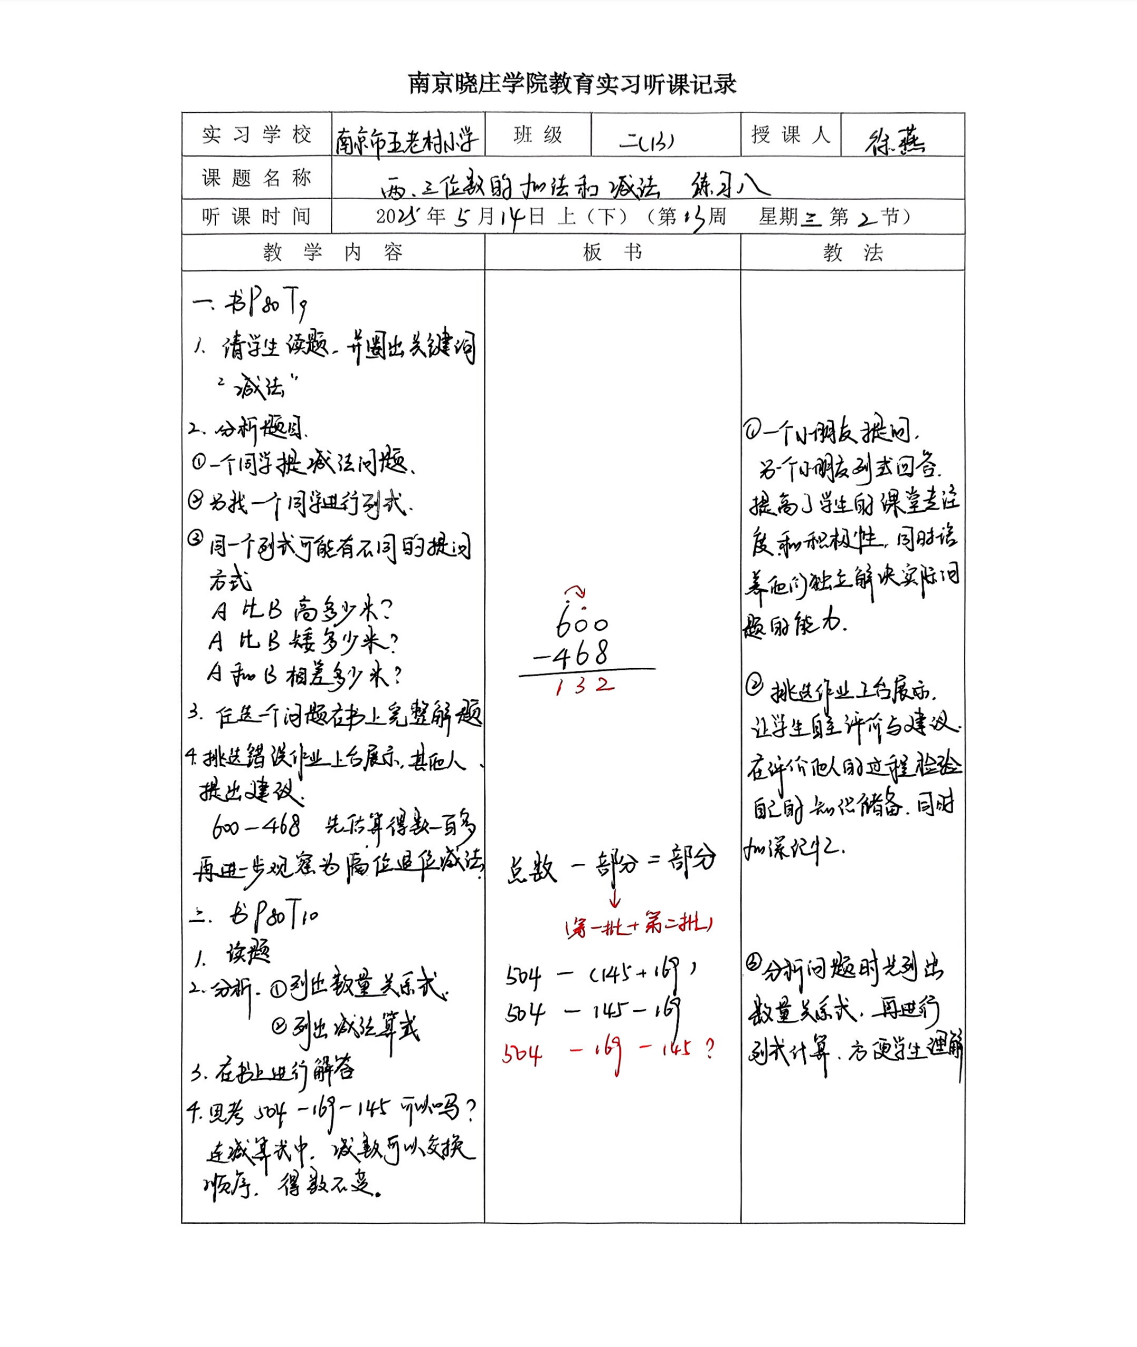 南京晓庄学院教育实习听课记录
实习学校 南京市五老村小学 班级 二(13) 授课人 徐燕
课题名称 两、三位数的加法和减法 练习八
听课时间 2025年5月14日上（下）（第13周 星期三第2节）
教学内容 板书 教法
一、书P80 T9
1. 请学生读题，并圈出关键词
“减法”
2. 分析题目.
①一个同学提减法问题、
②另找一个同学进行列式.
③同一个列式可能有不同的提问
方式
A比B高多少米？
A比B矮多少米？
A和B相差多少米？
3. 任选一个问题在书上完整解题
4. 挑选错误作业上台展示，其他人
提出建议.
600-468 先估算得数一百多
再进一步观察为隔位退位减法.
二、书P80 T10
1. 读题
2. 分析. ①列出数量关系式.
②列出减法算式
3. 在书上进行解答
4. 思考504-169-145可以吗？
连减算式中，减数可以交换
顺序，得数不变。
600
-468
132
总数-部分=部分
↓
(第一批+第二批)
504-(145+169)
504-145-169
504-169-145？
①一个小朋友提问，
另一个小朋友列式回答.
提高了学生的课堂专注
度和积极性，同时培
养他们独立解决实际问
题的能力.
②挑选作业上台展示，
让学生自主评价与建议.
在评价他人的过程检验
自己的知识储备，同时
加深记忆.
③分析问题时先列出
数量关系式，再进行
列式计算，方便学生理解